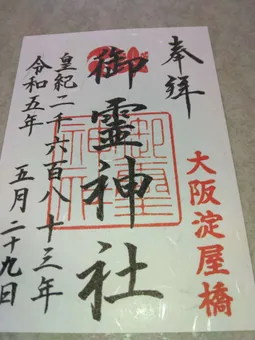 奉拝
大阪淀屋橋
御霊神社
御霊神社
皇紀二千六百八十三年
令和五年 五月二十九日